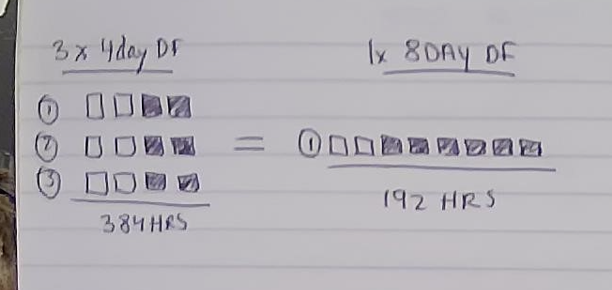 3 x 4day DF
①
②
③
384HRS
=
1x 8DAY DF
①
192 HRS